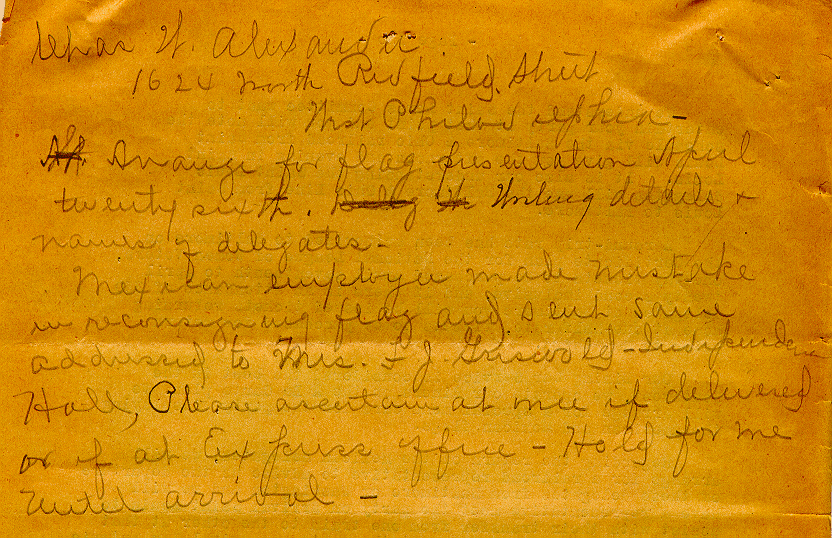 Chas W. Alexander
1624 North Redfield Street
West Philadelphia -
Arrange for flag presentation April
twenty sixth. details +
names of delegates -
Mexican employee made mistake
in reconsigning flag and sent same
addressed to Mrs. F J. Griswold - Independence
Hall, Please ascertain at once if delivered
or if at Express office - Hold for me
until arrival -